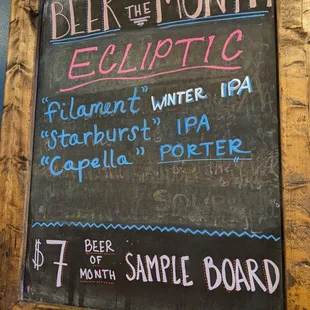 BEER THE MONTH
ECLIPTIC
"filament" WINTER IPA
"Starburst" IPA
"Capella" PORTER
$7 BEER OF MONTH SAMPLE BOARD